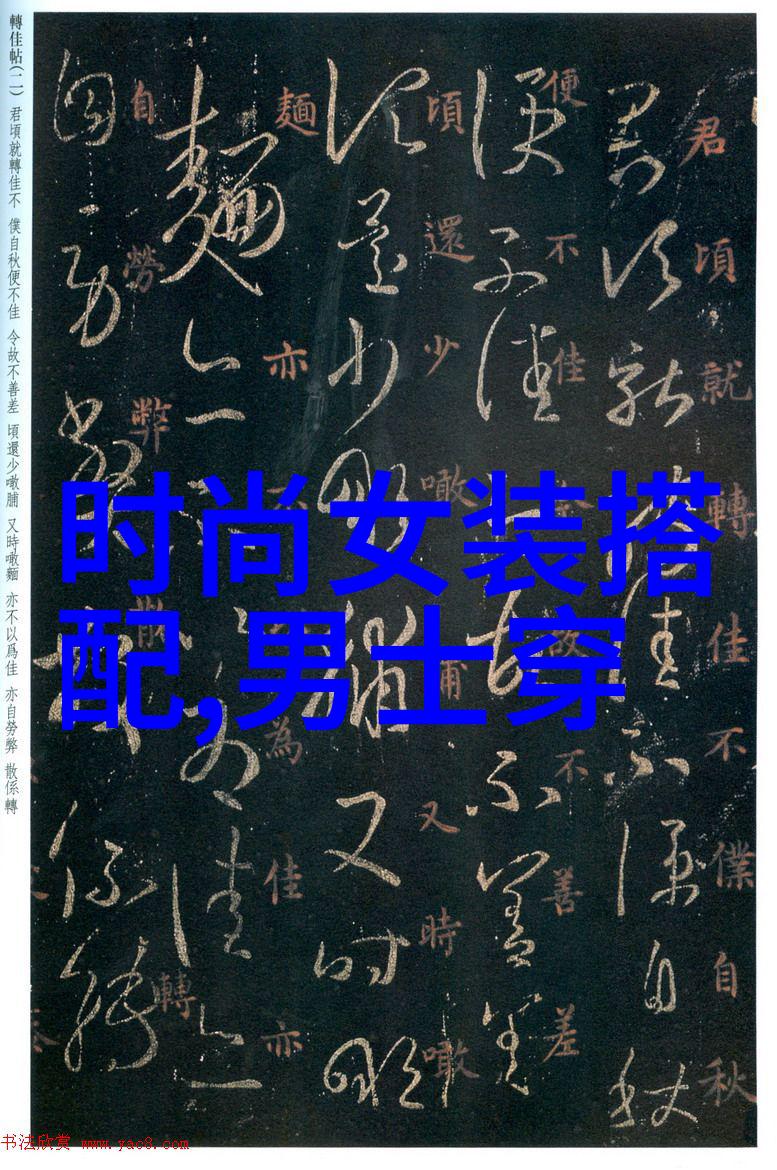 时尚女装搭
配,男士穿
君頃就轉佳不僕自秋
便不佳今故不善差
頃還少噉脯又時噉
麵亦不以為佳亦
自勞弊散係轉
轉佳帖(二) 君頃就轉佳不 僕自秋便不佳 令故不善差 頃還少噉脯 又時噉麵 亦不以爲佳 亦自勞弊 散係轉
书法欣赏 www.yac8.com